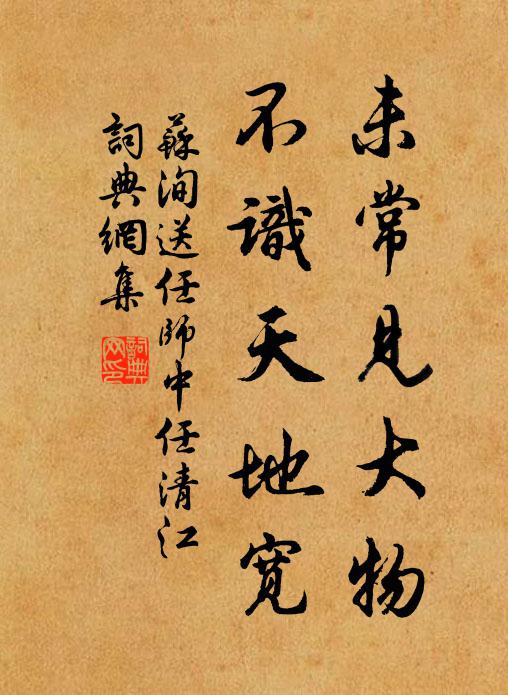 未常見大物
不識天地寬
蘇洵送任師中任清江
詞典網集
詞典網印